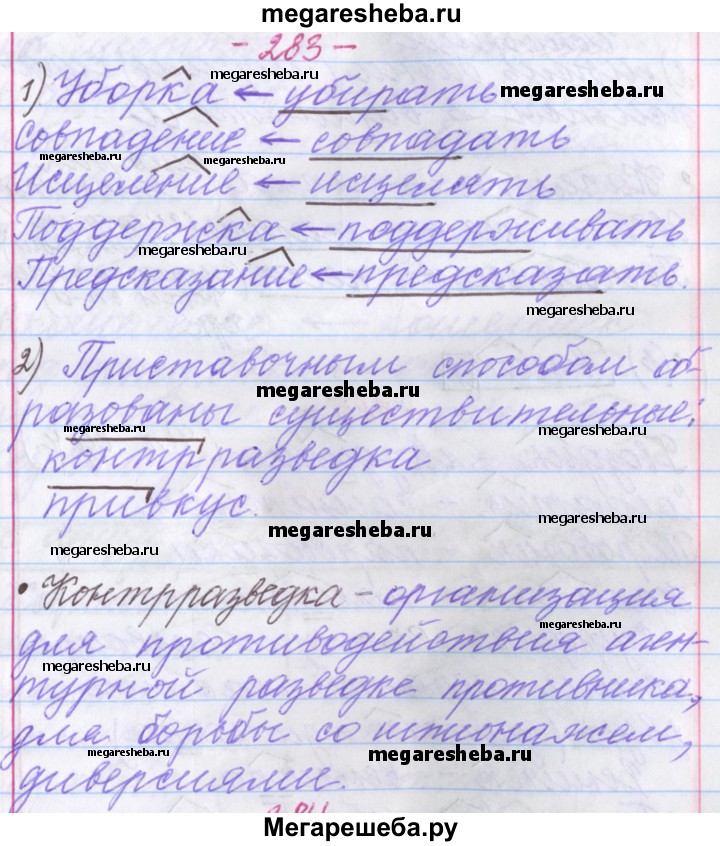 megaresheba.ru
- 283 -
megaresheba.ru
1) Уборка ← убирать
megaresheba.ru
Совпадение ← совпадать
megaresheba.ru megaresheba.ru
Исцеление ← исцелять
Поддержка ← поддерживать
megaresheba.ru
Предсказание ← предсказать.
megaresheba.ru
2) Приставочным способом об-
megaresheba.ru
разованы существительные:
megaresheba.ru megaresheba.ru
контрразведка
привкус.
megaresheba.ru megaresheba.ru
megaresheba.ru
• Контрразведка - организация
для противодействия аген-
megaresheba.ru megaresheba.ru
турной разведке противника,
для борьбы со шпионажем,
megaresheba.ru megaresheba.ru
диверсиями.
Мегарешеба.ру